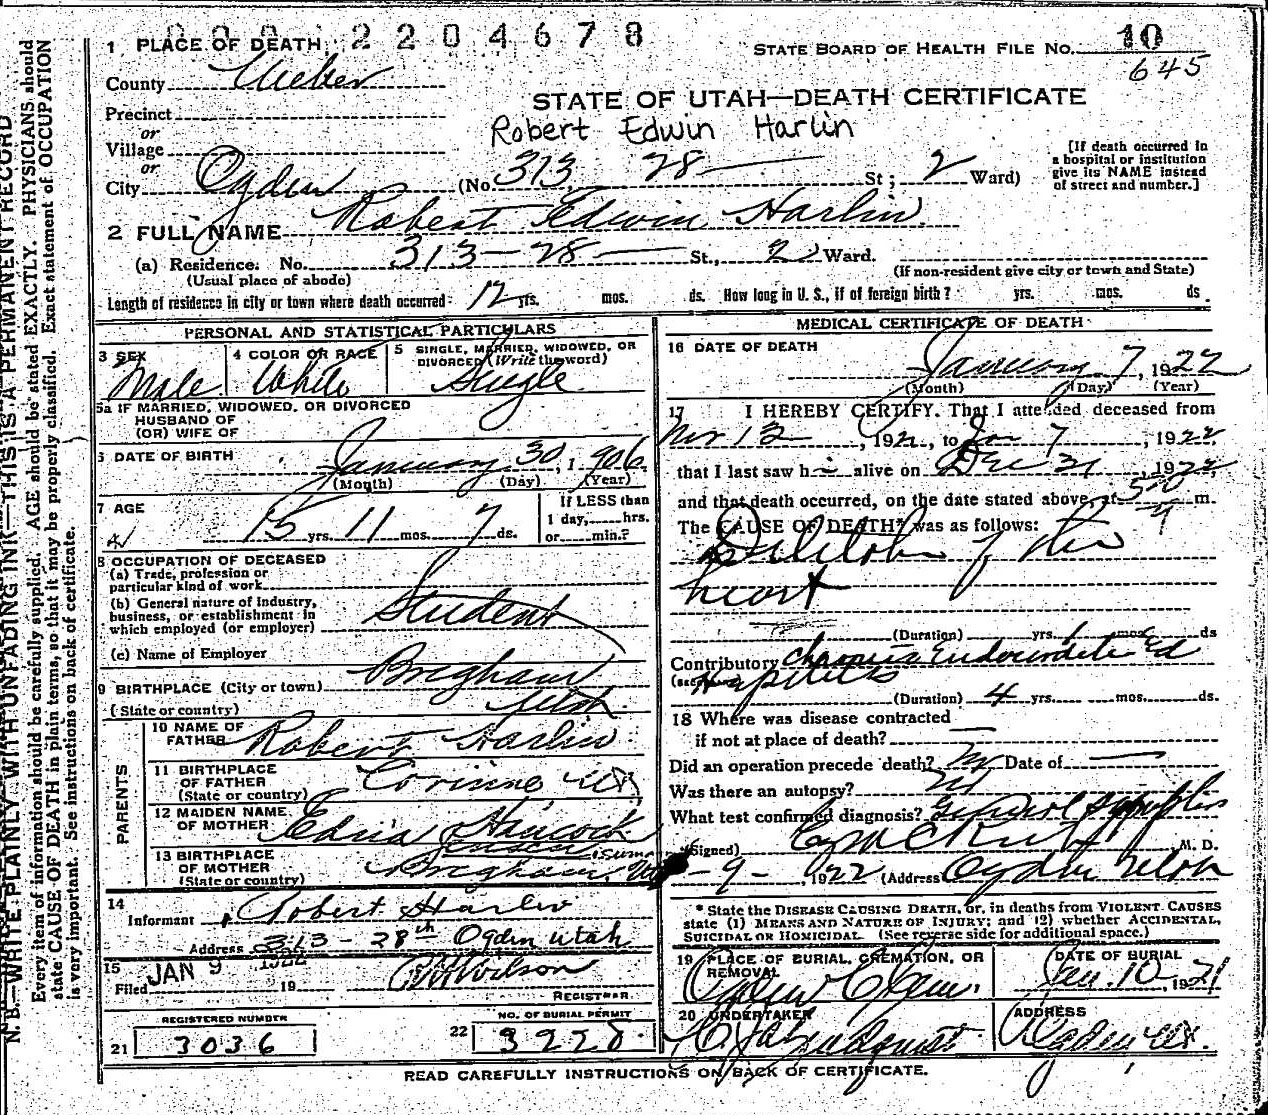 2204678
1 PLACE OF DEATH
STATE BOARD OF HEALTH FILE NO. 10
645
County Weber
STATE OF UTAH—DEATH CERTIFICATE
Precinct
Robert Edwin Harlin
or
Village
or
City Ogden (No. 313 28 St; 2 Ward)
[If death occurred in
a hospital or institution
give its NAME instead
of street and number.]
2 FULL NAME Robert Edwin Harlin
(a) Residence. No. 313-28 St., 2 Ward.
(Usual place of abode)
(If non-resident give city or town and State)
Length of residence in city or town where death occurred 12 yrs. mos. ds. How long in U. S., if of foreign birth? yrs. mos. ds.
PERSONAL AND STATISTICAL PARTICULARS
3 SEX Male
4 COLOR OR RACE White
5 SINGLE, MARRIED, WIDOWED, OR
DIVORCED (Write the word)
Single
5a IF MARRIED, WIDOWED, OR DIVORCED
HUSBAND OF
(OR) WIFE OF
6 DATE OF BIRTH January 30, 1906
(Month) (Day) (Year)
7 AGE
15 yrs. 11 mos. 7 ds.
If LESS than
1 day, hrs.
or min.?
8 OCCUPATION OF DECEASED
(a) Trade, profession or
particular kind of work
(b) General nature of industry,
business, or establishment in
which employed (or employer)
Student
(c) Name of Employer
9 BIRTHPLACE (City or town) Brigham
(State or country) Utah
PARENTS
10 NAME OF
FATHER Robert Harlin
11 BIRTHPLACE
OF FATHER
(State or country)
Corinne
12 MAIDEN NAME
OF MOTHER Edna Hancock
13 BIRTHPLACE
OF MOTHER
(State or country)
Brigham,
14
Informant Robert Harlin
Address 313-28th Ogden Utah
15
Filed JAN 9 1922 19 Wilson
REGISTRAR
REGISTERED NUMBER
21 3036
NO. OF BURIAL PERMIT
22 3228
MEDICAL CERTIFICATE OF DEATH
16 DATE OF DEATH
January 7, 1922
(Month) (Day) (Year)
17 I HEREBY CERTIFY, That I attended deceased from
Nov 12, 1921, to Jan 7, 1922
that I last saw him alive on Dec 31, 1922,
and that death occurred, on the date stated above, at m.
The CAUSE OF DEATH* was as follows:
of the
heart
(Duration) yrs. 1 mos. ds
Contributory
(Duration) 4 yrs. mos. ds.
18 Where was disease contracted
if not at place of death?
Did an operation precede death? No Date of
Was there an autopsy? No
What test confirmed diagnosis? General
(Signed) M. D.
-9-, 1922 (Address Ogden Utah
* State the DISEASE CAUSING DEATH, or, in deaths from VIOLENT CAUSES
state (1) MEANS AND NATURE OF INJURY; and (2) whether ACCIDENTAL,
SUICIDAL OR HOMICIDAL. (See reverse side for additional space.)
19 PLACE OF BURIAL, CREMATION, OR
REMOVAL
Ogden Cem.
DATE OF BURIAL
Jan. 10, 1921
20 UNDERTAKER
Lindquist
ADDRESS
Ogden, Ut.
READ CAREFULLY INSTRUCTIONS ON BACK OF CERTIFICATE.
N. B.—WRITE PLAINLY WITH UNFADING INK—THIS IS A PERMANENT RECORD
Every item of information should be carefully supplied. AGE should be stated EXACTLY. PHYSICIANS should
state CAUSE OF DEATH in plain terms, so that it may be properly classified. Exact statement of OCCUPATION
is very important. See instructions on back of certificate.